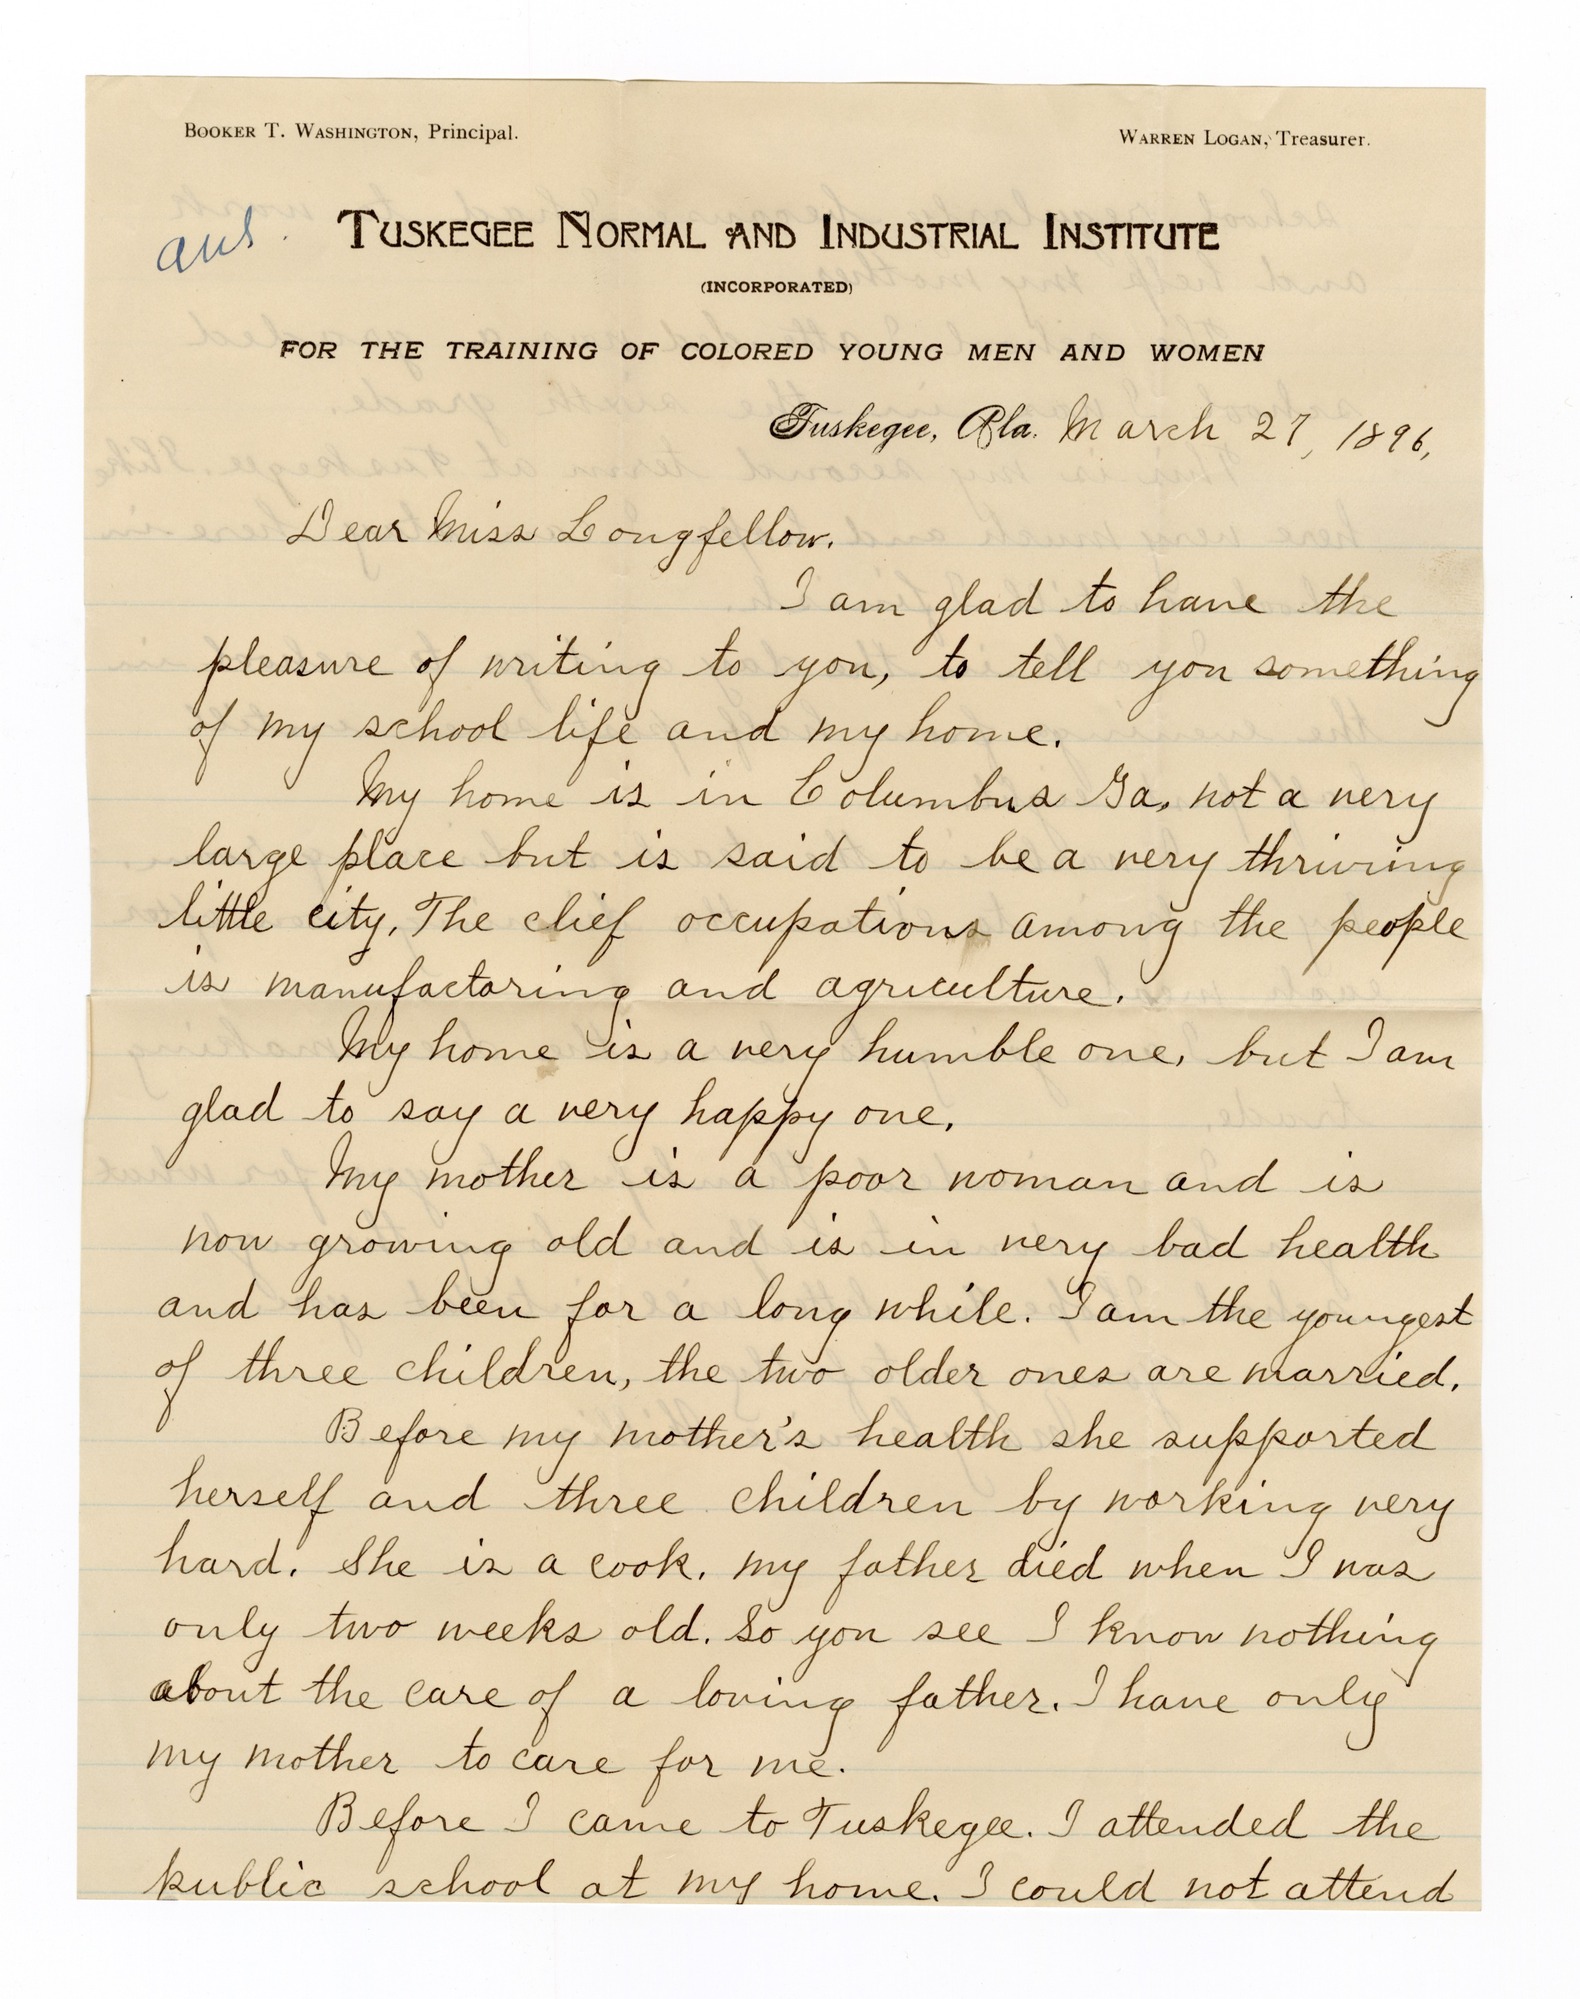 BOOKER T. WASHINGTON, Principal.
WARREN LOGAN, Treasurer.
ans.
TUSKEGEE NORMAL AND INDUSTRIAL INSTITUTE
(INCORPORATED)
FOR THE TRAINING OF COLORED YOUNG MEN AND WOMEN
Tuskegee, Ala. March 27, 1896,
Dear Miss Longfellow.
I am glad to have the
pleasure of writing to you, to tell you something
of my school life and my home.
My home is in Columbus Ga, not a very
large place but is said to be a very thriving
little city. The clief occupations among the people
is manufactoring and agriculture.
My home is a very humble one, but I am
glad to say a very happy one.
My mother is a poor woman and is
now growing old and is in very bad health
and has been for a long while. I am the youngest
of three children, the two older ones are married.
Before my mother's health she supported
herself and three children by working very
hard. She is a cook. my father died when I was
only two weeks old. So you see I know nothing
about the care of a loving father. I have only
my mother to care for me.
Before I came to Tuskegee. I attended the
public school at my home. I could not attend